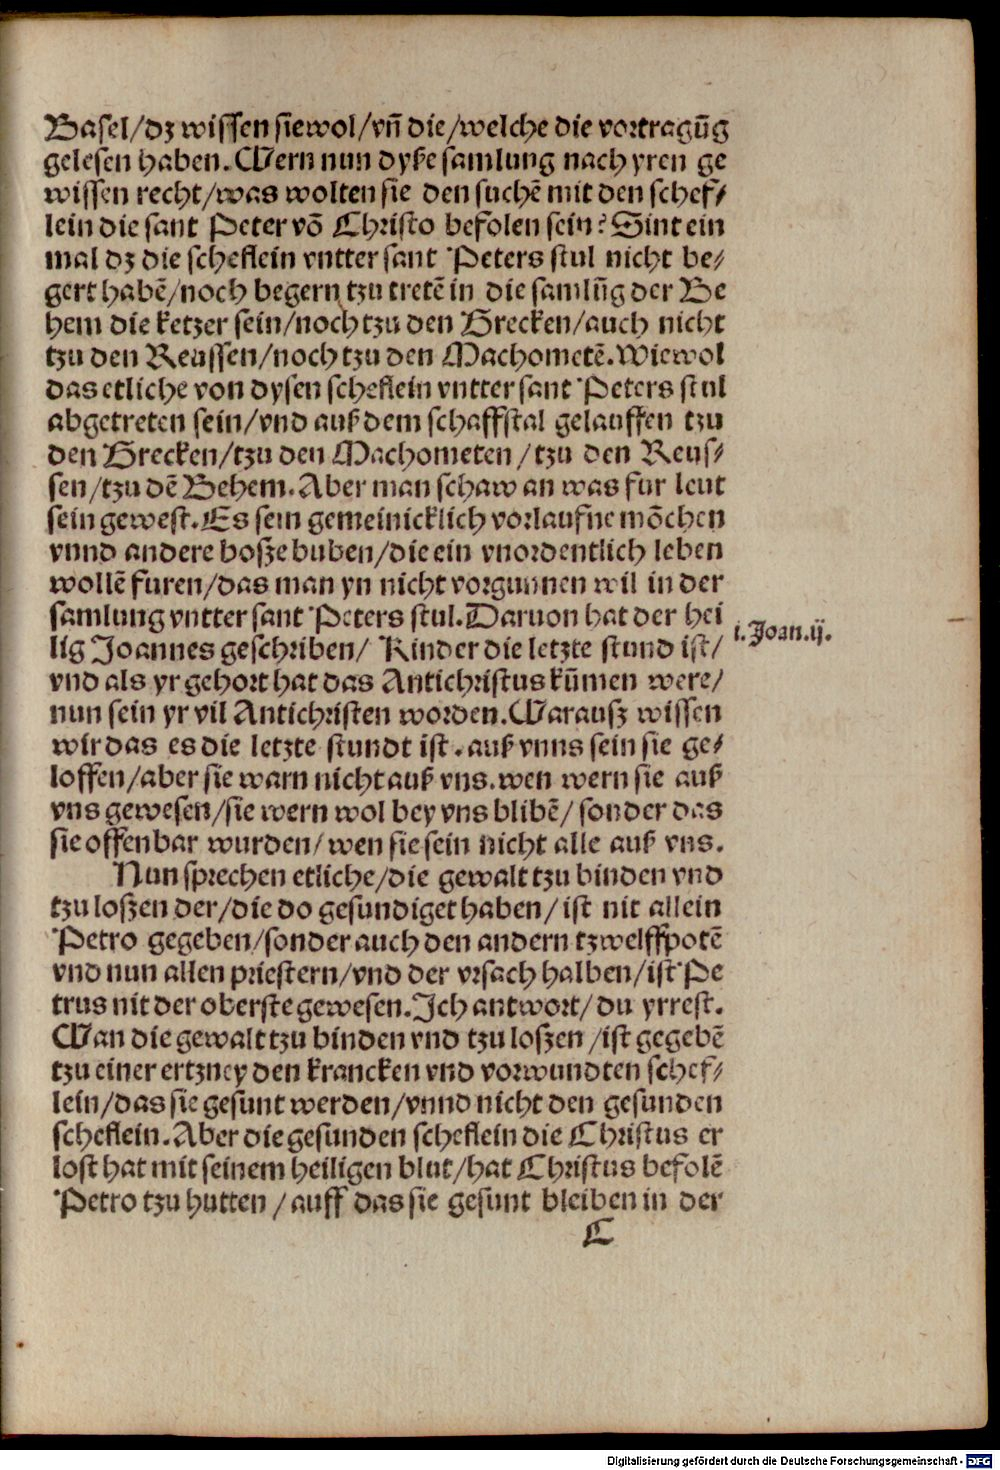 Basel/dz wissen sie wol/vn̄ die/welche die vortragūg
gelesen haben. Wern nun dyße samlung nach yren ge
wissen recht/was wolten sie den suchē mit den schef⸗
lein die sant Peter vō Christo befolen sein? Sint ein
mal dz die scheflein vntter sant Peters stul nicht be⸗
gert habē/noch begern tzu tretē in die samlūg der Be
hem die ketzer sein/noch tzu den Grecken/auch nicht
tzu den Reussen/noch tzu den Machometē. Wiewol
das etliche von dysen scheflein vntter sant Peters stul
abgetreten sein/vnd auß dem schaffstal gelauffen tzu
den Grecken/tzu den Machometen/tzu den Reus⸗
sen/tzu dē Behem. Aber man schaw an was fur leut
sein gewest. Es sein gemeinicklich vorlaufne mōchen
vnnd andere bosze buben/die ein vnordentlich leben
wollē furen/das man yn nicht vorgunnen wil in der
samlung vntter sant Peters stul. Daruon hat der hei
lig Joannes geschriben/ Kinder die letzte stund ist/
i. Joan. ij.
vnd als yr gehort hat das Antichristus kūmen were/
nun sein yr vil Antichristen worden. Warausz wissen
wir das es die letzte stundt ist. auß vnns sein sie ge⸗
loffen/aber sie warn nicht auß vns. wen wern sie auß
vns gewesen/sie wern wol bey vns blibē/ sonder das
sie offenbar wurden/ wen sie sein nicht alle auß vns.
Nun sprechen etliche/die gewalt tzu binden vnd
tzu loszen der/die do gesundiget haben/ ist nit allein
Petro gegeben/sonder auch den andern tzwelffpotē
vnd nun allen priestern/vnd der vrsach halben/ist Pe
trus nit der oberste gewesen. Ich antwort/ du yrrest.
Wan die gewalt tzu binden vnd tzu loszen/ist gegebē
tzu einer ertzney den krancken vnd vorwundten schef⸗
lein/das sie gesunt werden/vnnd nicht den gesunden
scheflein. Aber die gesunden scheflein die Christus er
lost hat mit seinem heiligen blut/hat Christus befolē
Petro tzu hutten/auff das sie gesunt bleiben in der
C
Digitalisierung gefördert durch die Deutsche Forschungsgemeinschaft - DFG